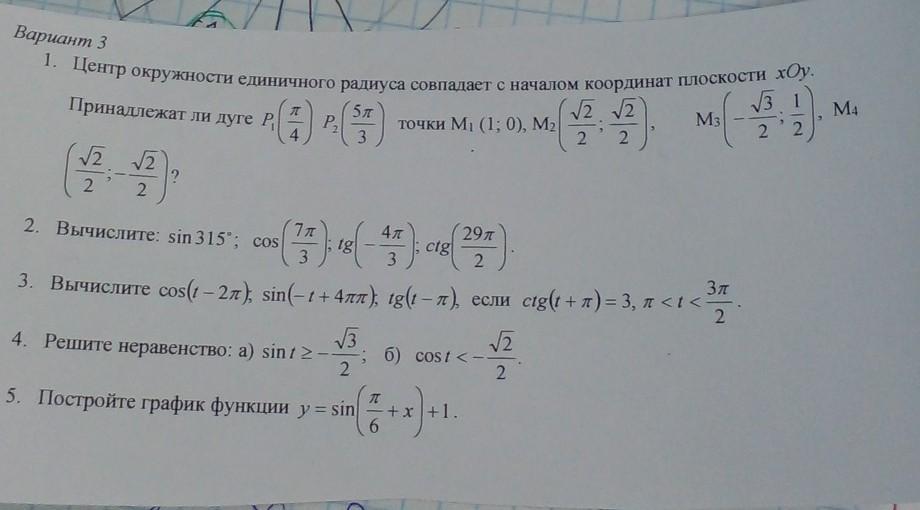 Вариант 3
1. Центр окружности единичного радиуса совпадает с началом координат плоскости xOy.
Принадлежат ли дуге P₁(π/4) P₂(5π/3) точки M₁ (1; 0), M₂(√2/2; √2/2), M₃(-√3/2; 1/2), M₄
(√2/2; -√2/2)?
2. Вычислите: sin 315°; cos(7π/3); tg(-4π/3); ctg(29π/2).
3. Вычислите cos(t – 2π); sin(– t + 4ππ); tg(t – π), если ctg(t + π) = 3, π < t < 3π/2.
4. Решите неравенство: а) sin t ≥ -√3/2; б) cos t < -√2/2.
5. Постройте график функции y = sin(π/6 + x) + 1.